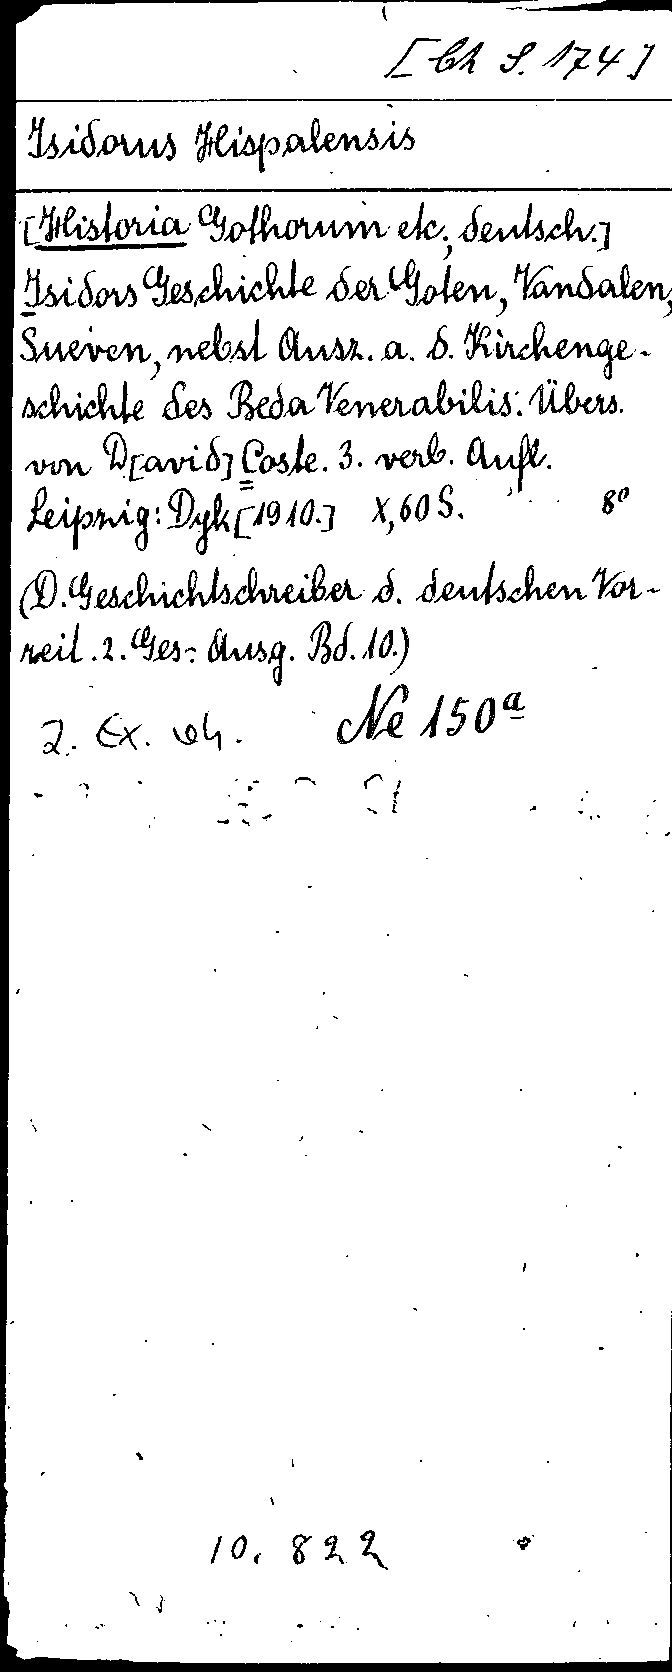 [Ch S. 174]
Isidorus Hispalensis
[Historia Gothorum etc., deutsch.]
Isidors Geschichte der Goten, Vandalen,
Sueven, nebst Ausz. a. d. Kirchenge-
schichte des Beda Venerabilis. Übers.
von D[avid] Coste. 3. verb. Aufl.
Leipzig: Dyk [1910.] X, 60 S. 8°
(D. Geschichtschreiber d. deutschen Vor-
zeit. 2. Ges.-Ausg. Bd. 10.)
2. Ex. vh. Ne 150a
10. 822